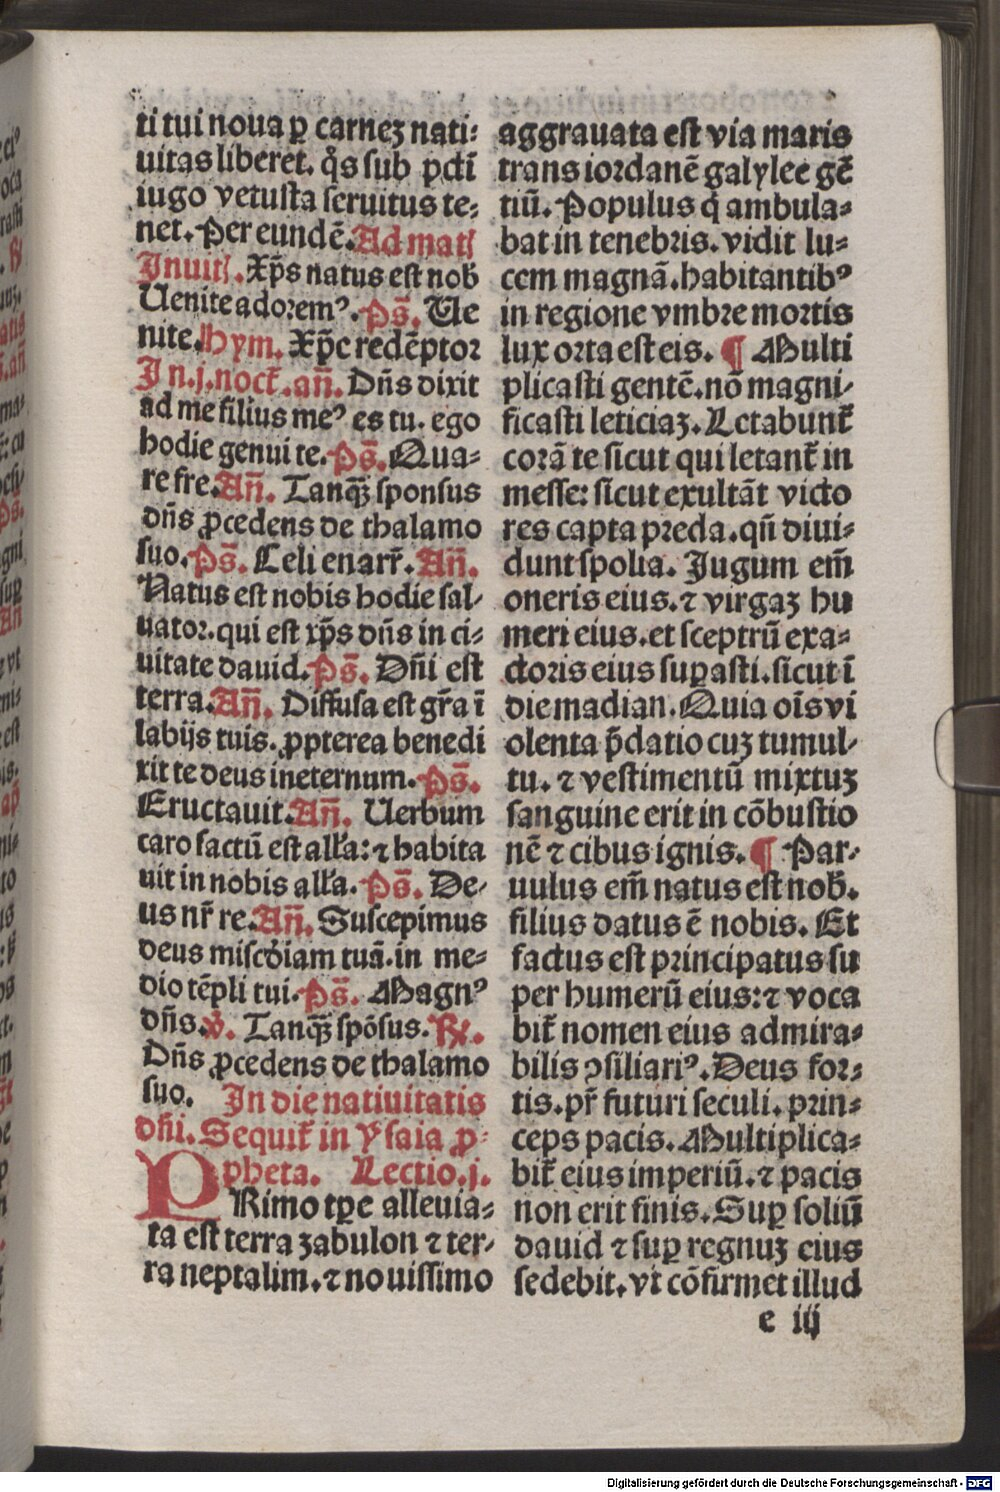 ti tui noua ꝑ carneʒ nati⸗
uitas liberet. q̊s sub pctī
iugo vetusta seruitus te⸗
net. Per eundē. Ad matꝭ
Inuitꝭ. Xp̄s natus est nob̄
Uenite adorem⁹. Ps̄. Ue
nite. Hym. Xp̄e redēptor
In.j.noct̄.an̄. Dn̄s dixit
ad me filius me⁹ es tu. ego
hodie genui te. Ps̄. Qua⸗
re fre. An̄. Tanqꝫ sponsus
dn̄s ꝓcedens de thalamo
suo. Ps̄. Celi enarr̄. An̄.
Natus est nobis hodie sal⸗
uator. qui est xp̄s dn̄s in ci⸗
uitate dauid. Ps̄. Dn̄i est
terra. An̄. Diffusa est gr̄a ī
labijs tuis. ꝓpterea benedi
xit te deus in eternum. Ps̄.
Eructauit. An̄. Uerbum
caro factū est all̄a: ⁊ habita
uit in nobis all̄a. Ps̄. De⸗
us nr̄ re. An̄. Suscepimus
deus misc̄diam tuā. in me⸗
dio tēpli tui. Ps̄. Magn⁹
dn̄s. ℣. Tanqꝫ spōsus. ℟.
Dn̄s ꝓcedens de thalamo
suo. In die natiuitatis
dn̄i. Sequit̄ in Ysaia ꝓ⸗
pheta. Lectio.j.
PRimo tꝑe alleuia⸗
ta est terra zabulon ⁊ ter⸗
ra neptalim. ⁊ nouissimo
aggrauata est via maris
trans iordanē galylee gē
tiū. Populus q̄ ambula⸗
bat in tenebris. vidit lu⸗
cem magnā. habitantib⁹
in regione vmbre mortis
lux orta est eis. ¶ Multi
plicasti gentē. nō magni⸗
ficasti leticiaʒ. Letabunt̄
corā te sicut qui letant̄ in
messe: sicut exultāt victo
res capta preda. qn̄ diui⸗
dunt spolia. Jugum em̄
oneris eius. ⁊ virgaʒ hu
meri eius. et sceptrū exa⸗
ctoris eius suꝑasti. sicut ī
die madian. Quia oīs vi
olenta p̄datio cuʒ tumul⸗
tu. ⁊ vestimentū mixtuʒ
sanguine erit in cōbustio
nē ⁊ cibus ignis. ¶ Par⸗
uulus em̄ natus est nob̄.
filius datus ē nobis. Et
factus est principatus su
per humerū eius: ⁊ voca
bit̄ nomen eius admira⸗
bilis ↄsiliari⁹. Deus for⸗
tis. pr̄ futuri seculi. prin⸗
ceps pacis. Multiplica⸗
bit̄ eius imperiū. ⁊ pacis
non erit finis. Suꝑ soliū
dauid ⁊ suꝑ regnuʒ eius
sedebit. vt cōfirmet illud
e iij
Digitalisierung gefördert durch die Deutsche Forschungsgemeinschaft - DFG